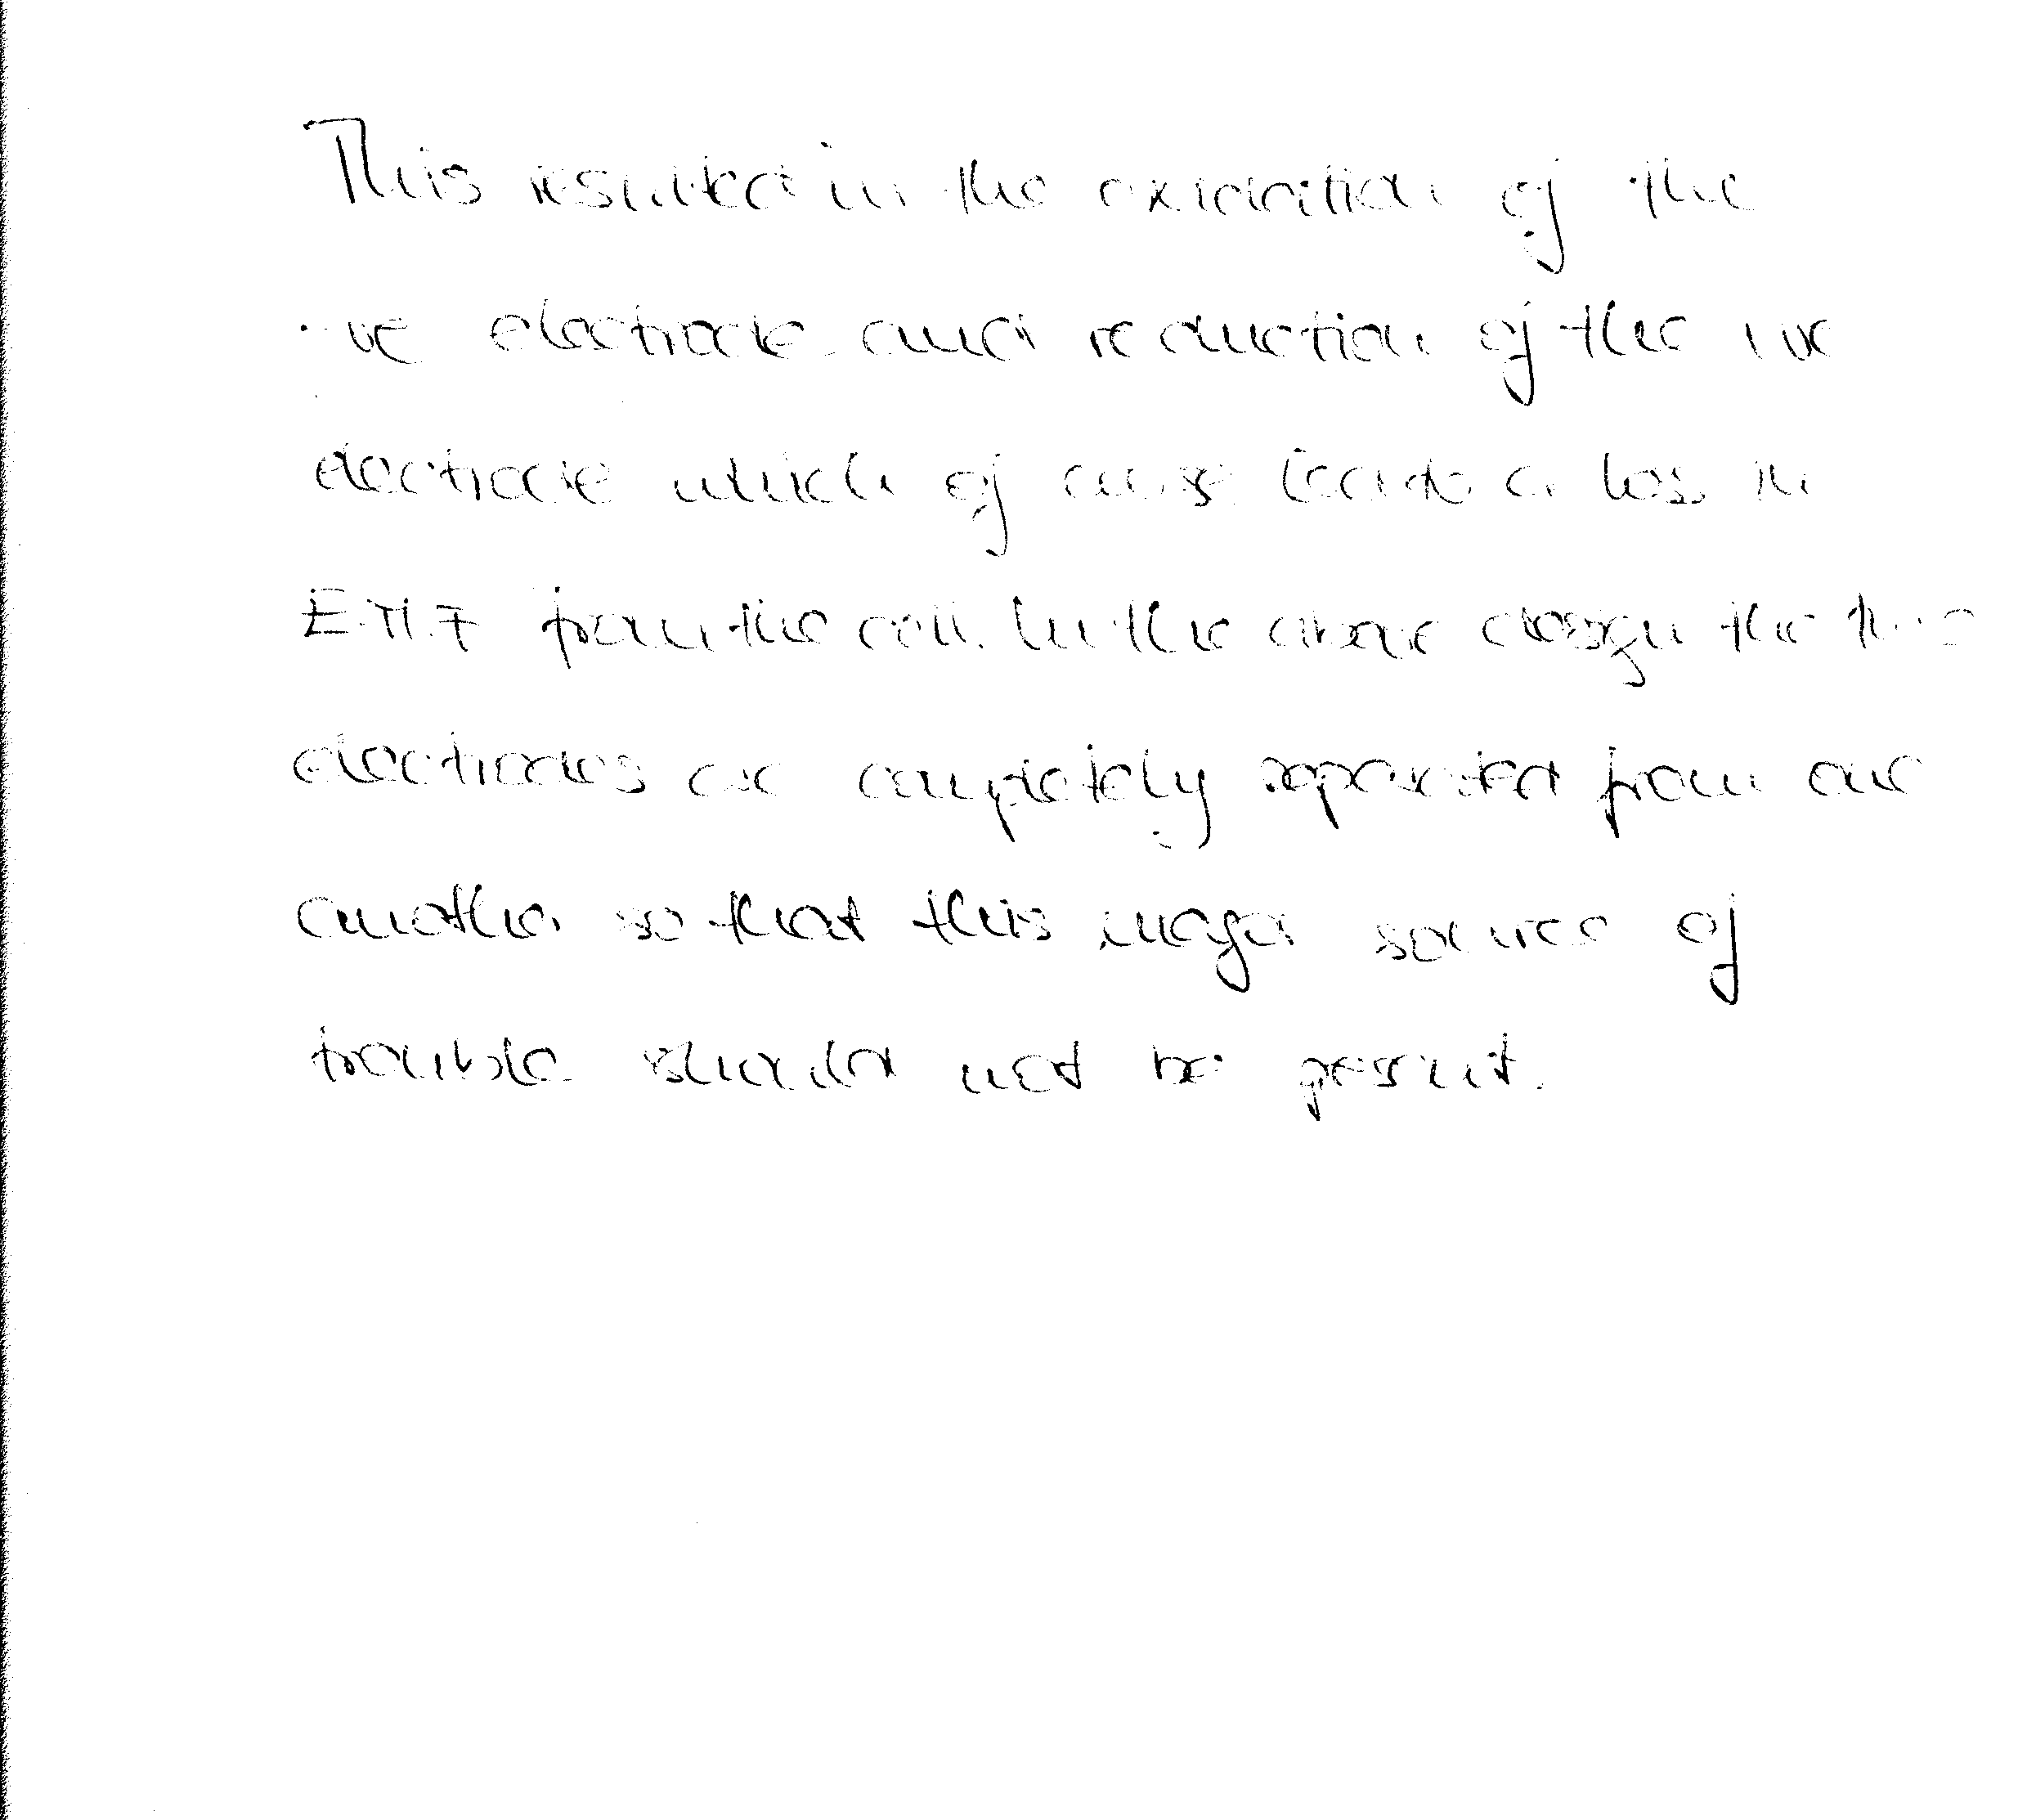 This resulted in the oxidation of the
-ve electrode and reduction of the +ve
electrode which of course lead to a loss in
E.M.F from the cell. In the above design the two
electrodes are completely seperated from one
another so that this major source of
trouble should not be present.